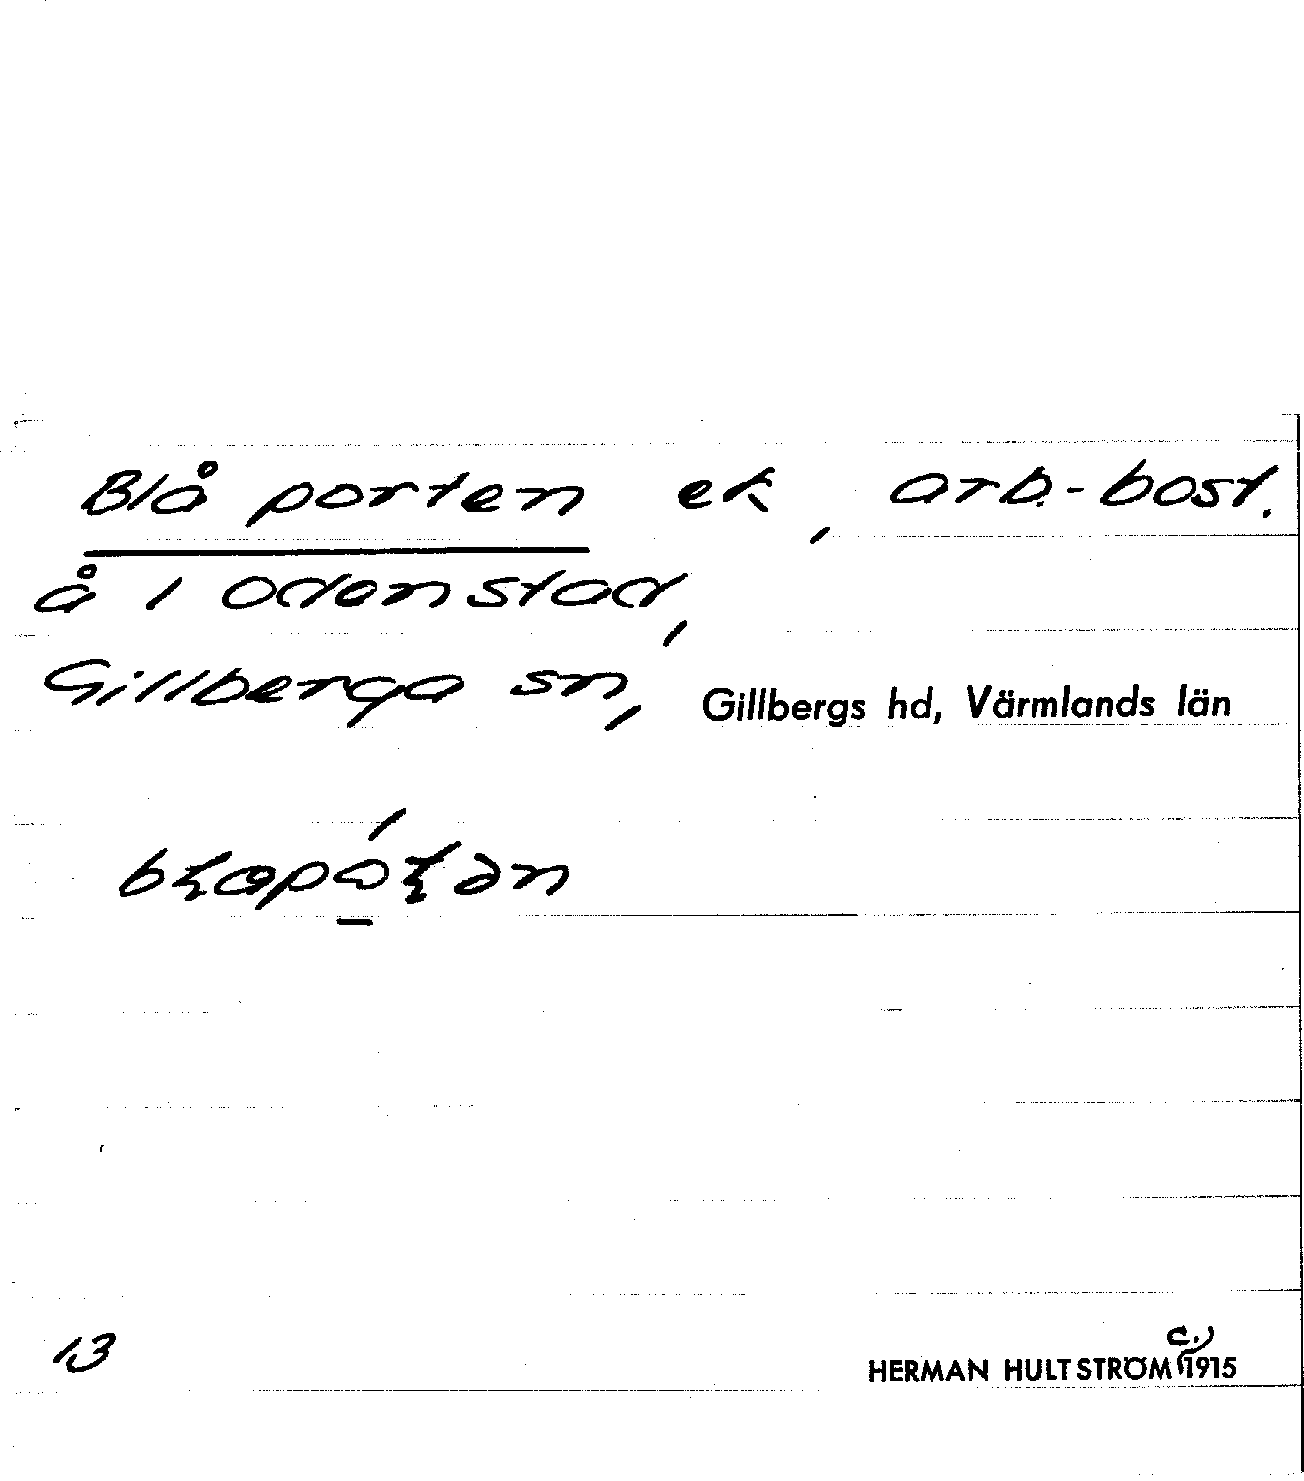 Blå porten ek, arb.-bost.
å 1 Odenstad,
Gillberga sn, Gillbergs hd, Värmlands län
13
HERMAN HULTSTRÖM c.) 1915